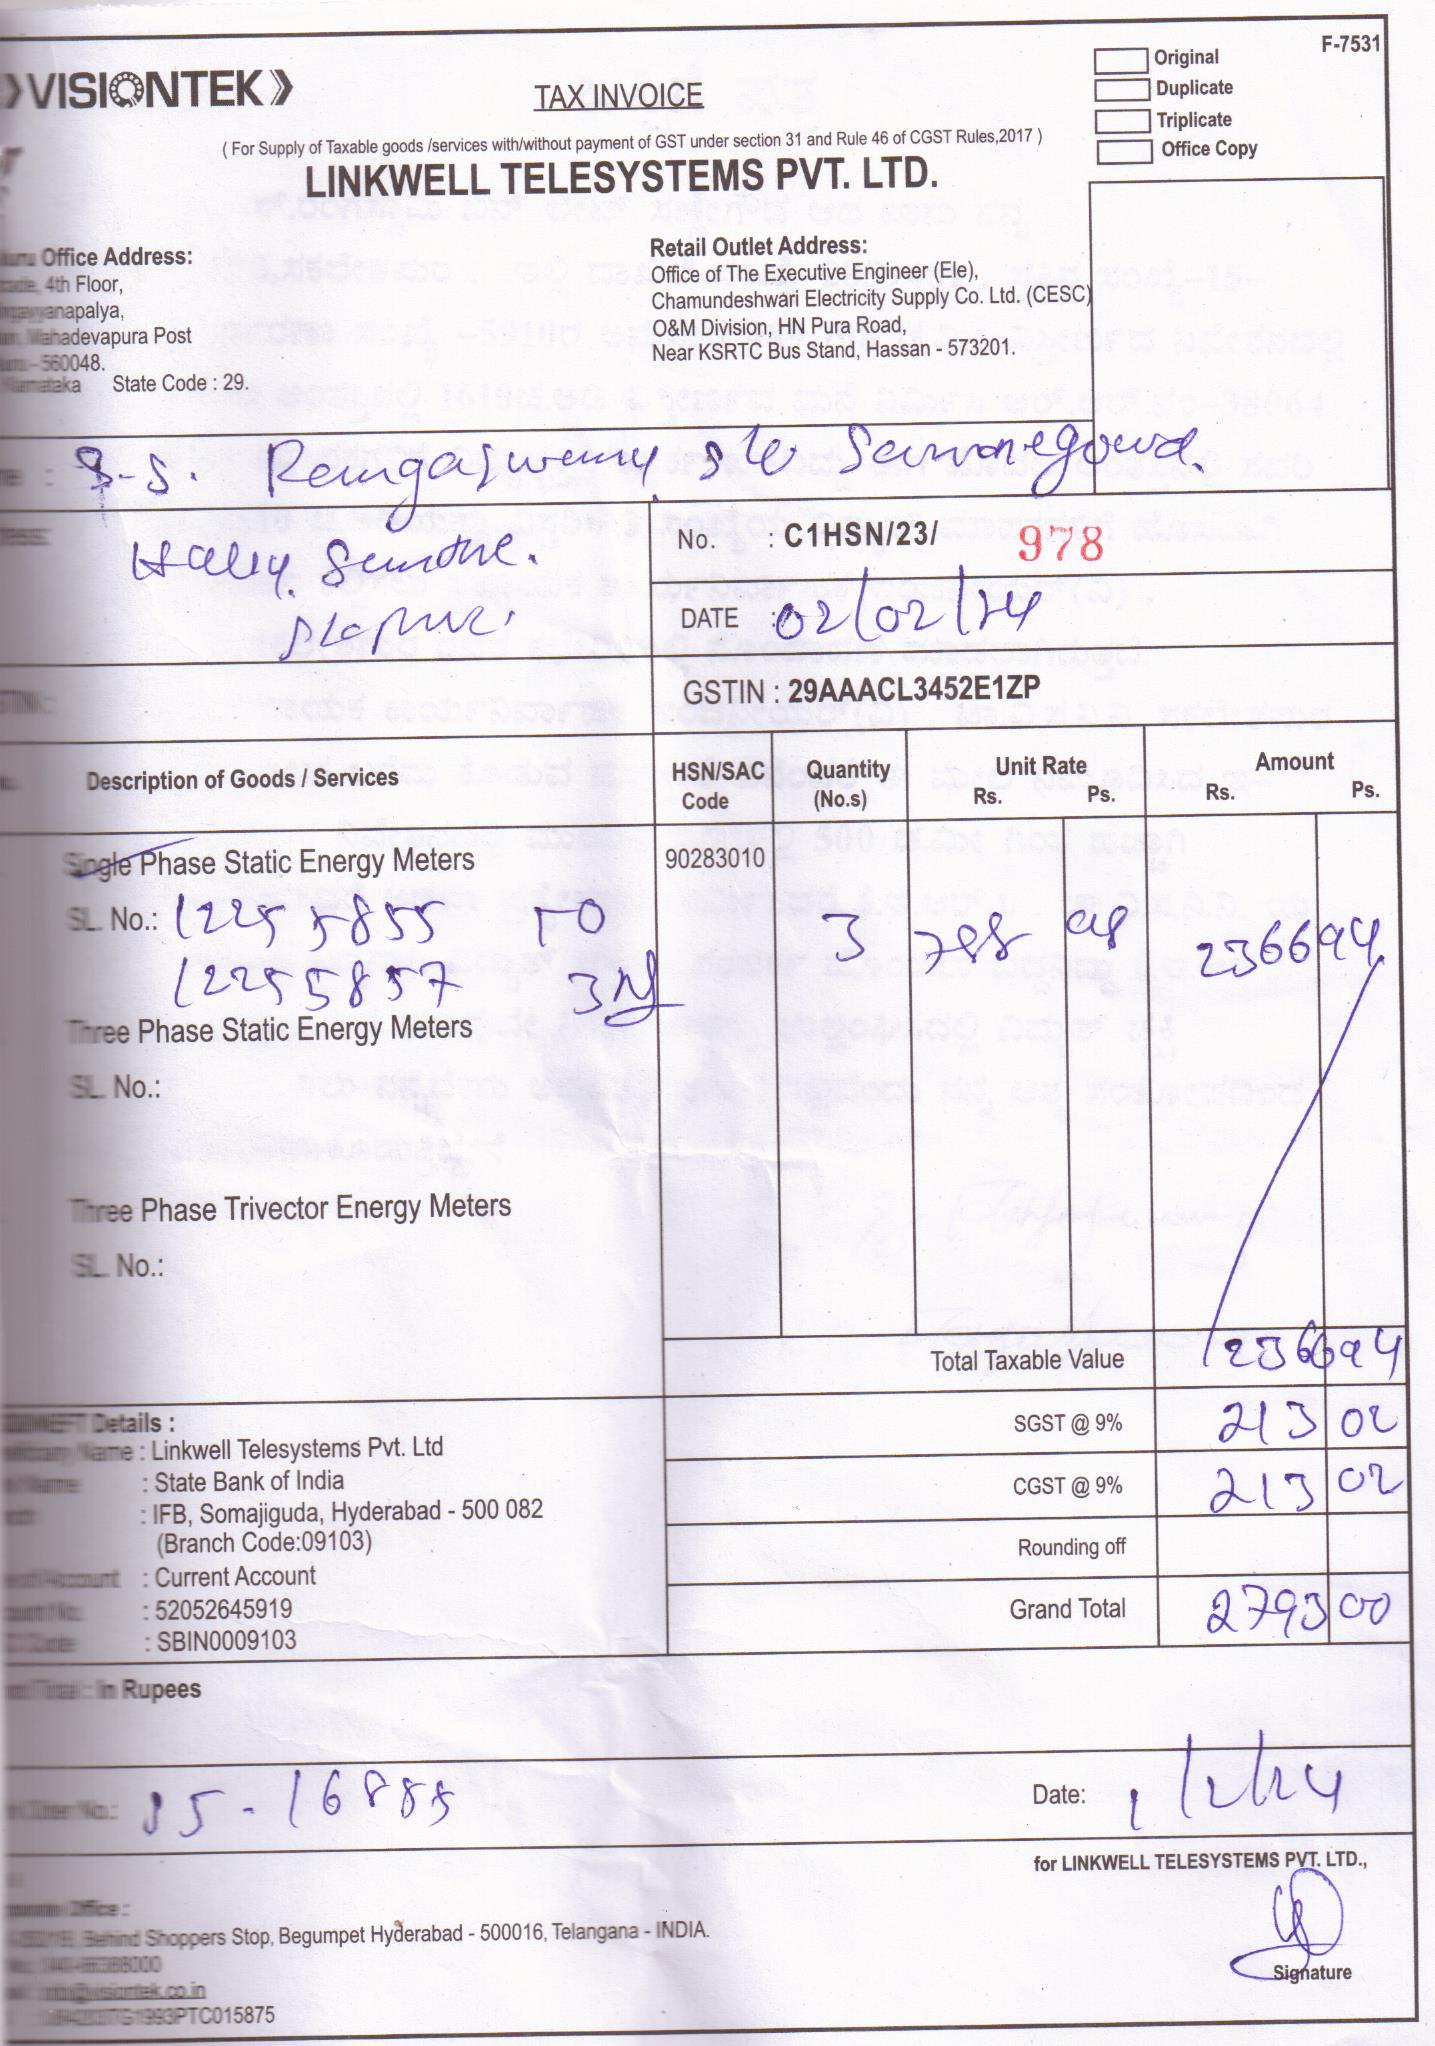 VISIONTEK
TAX INVOICE
( For Supply of Taxable goods /services with/without payment of GST under section 31 and Rule 46 of CGST Rules,2017 )
LINKWELL TELESYSTEMS PVT. LTD.
F-7531
Original
Duplicate
Triplicate
Office Copy
Office Address:
4th Floor,
Mahadevapura Post
560048.
Karnataka State Code : 29.
Retail Outlet Address:
Office of The Executive Engineer (Ele),
Chamundeshwari Electricity Supply Co. Ltd. (CESC)
O&M Division, HN Pura Road,
Near KSRTC Bus Stand, Hassan - 573201.
S.S. Rangaswamy s/o
No. : C1HSN/23/ 978
DATE : 02/02/24
GSTIN : 29AAACL3452E1ZP
Description of Goods / Services
HSN/SAC Code
Quantity (No.s)
Unit Rate Rs. Ps.
Amount Rs. Ps.
Single Phase Static Energy Meters 90283010
SL. No.: 12255855 TO 3 788 98 2366 94
12255857
Three Phase Static Energy Meters
SL. No.:
Three Phase Trivector Energy Meters
SL. No.:
Total Taxable Value 2366 94
SGST @ 9% 213 02
CGST @ 9% 213 02
Rounding off
Grand Total 2793 00
Details :
Name : Linkwell Telesystems Pvt. Ltd
Name : State Bank of India
: IFB, Somajiguda, Hyderabad - 500 082
(Branch Code:09103)
Account : Current Account
: 52052645919
Code : SBIN0009103
In Rupees
Date: 1/2/24
for LINKWELL TELESYSTEMS PVT. LTD.,
Signature
Office :
Behind Shoppers Stop, Begumpet Hyderabad - 500016, Telangana - INDIA.